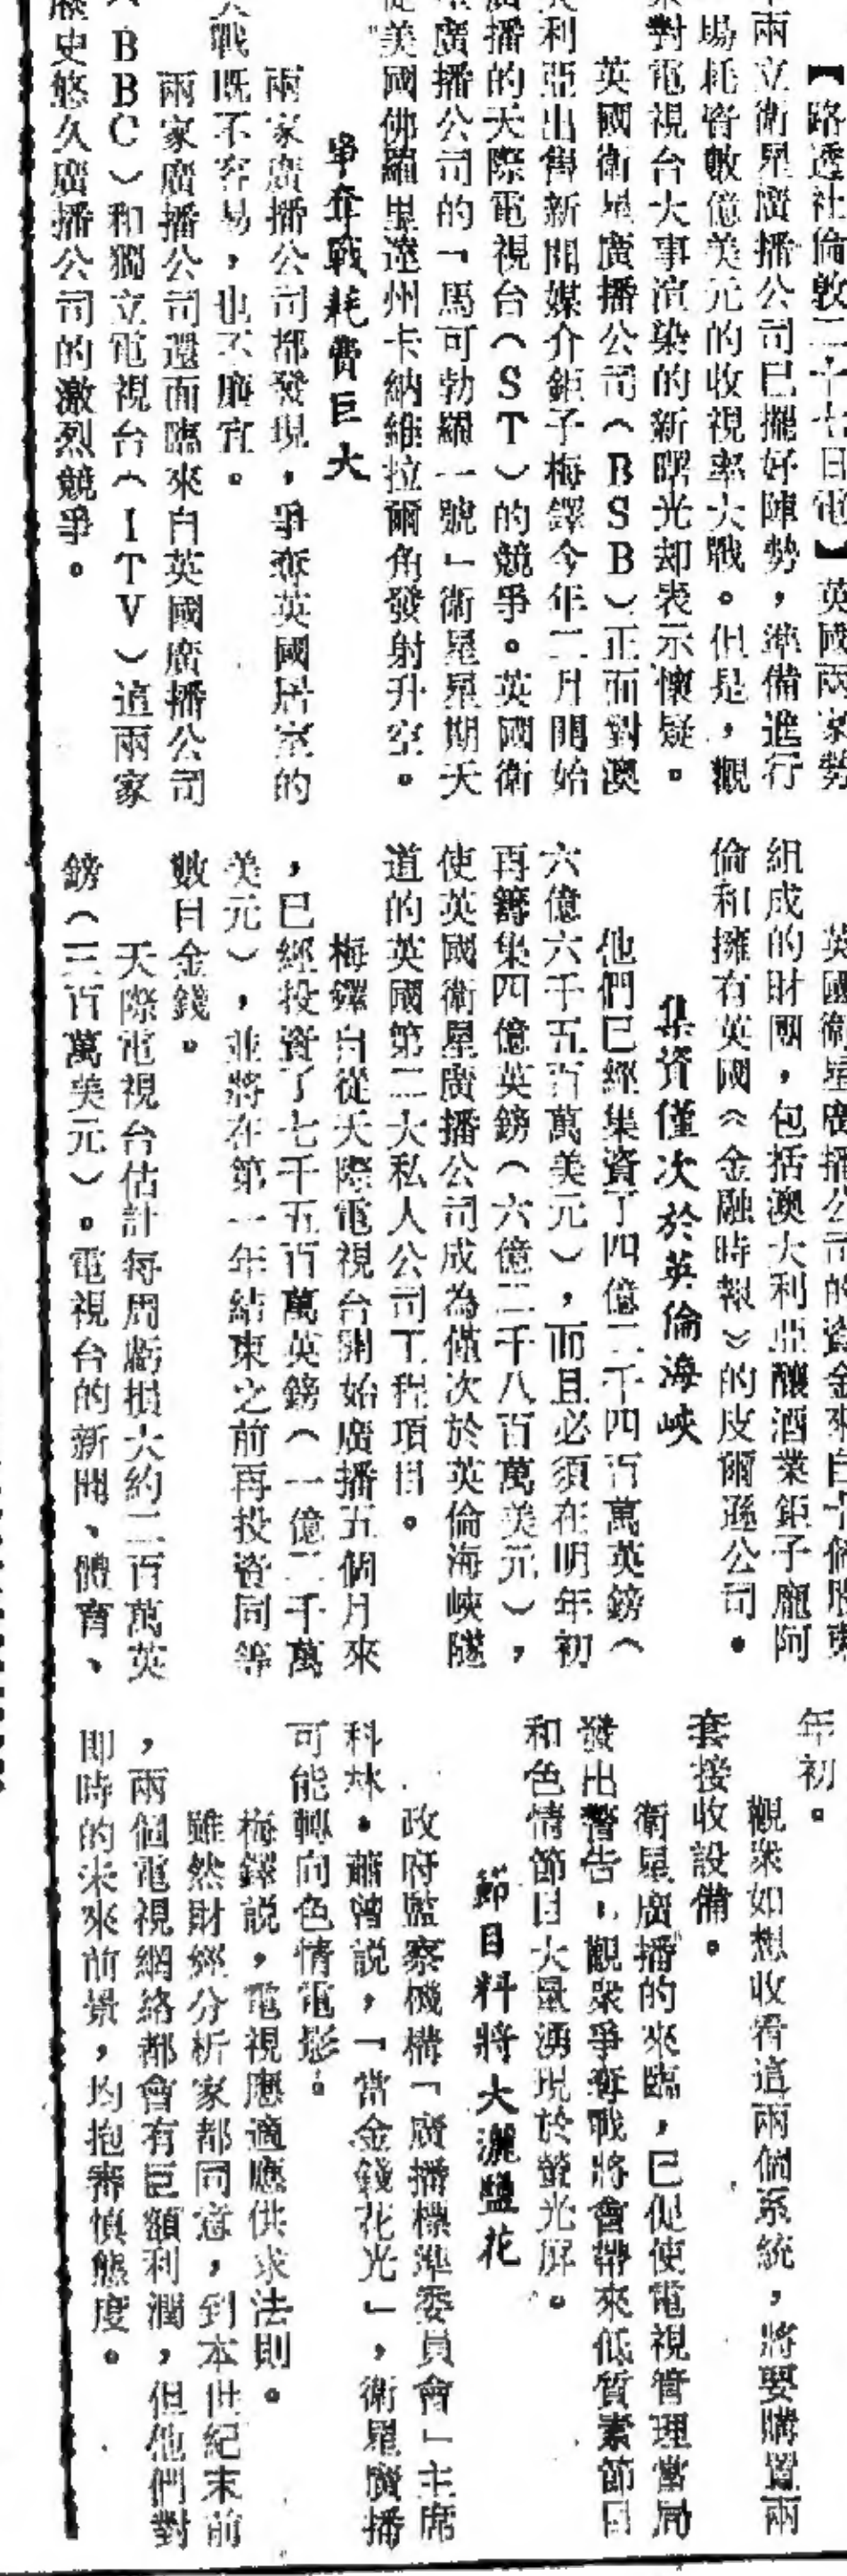 【路透社倫敦二十七日電】英國兩家勢
兩立衛星廣播公司已擺好陣勢，準備進行
場耗資數億美元的收視率大戰。但是，觀
衆對電視台大事渲染的新曙光却表示懷疑。
英國衛星廣播公司（BSB）正面對澳
利亞出售新聞媒介鉅子梅鐸今年二月開始
廣播的天際電視台（ST）的競爭。英國衛
星廣播公司的「馬可勃羅一號」衛星星期天
從美國佛羅里達州卡納維拉爾角發射升空。
爭奪戰耗費巨大
兩家廣播公司都發現，爭奪英國居室的
大戰既不容易，也不廉宜。
兩家廣播公司還面臨來自英國廣播公司
（BBC）和獨立電視台（ITV）這兩家
歷史悠久廣播公司的激烈競爭。
英國衛星廣播公司的資金來自十個股東
組成的財團，包括澳大利亞釀酒業鉅子龐阿
倫和擁有英國《金融時報》的皮爾遜公司。
集資僅次於英倫海峽
他們已經集資了四億二千四百萬英鎊（
六億六千五百萬美元），而且必須在明年初
再籌集四億英鎊（六億二千八百萬美元），
使英國衛星廣播公司成為僅次於英倫海峽隧
道的英國第二大私人公司工程項目。
梅鐸自從天際電視台開始廣播五個月來
，已經投資了七千五百萬英鎊（一億二千萬
美元），並將在第一年結束之前再投資同等
數目金錢。
天際電視台估計每周虧損大約二百萬英
鎊（三百萬美元）。電視台的新聞、體育、
年初。
觀衆如想收看這兩個系統，將要購置兩
套接收設備。
衛星廣播的來臨，已促使電視管理當局
發出警告，觀衆爭奪戰將會帶來低質素節目
和色情節目大量湧現於螢光屏。
節目料將大灑鹽花
政府監察機構「廣播標準委員會」主席
科林·蕭曾說，「當金錢花光」，衛星廣播
可能轉向色情電影。
梅鐸説，電視應適應供求法則。
雖然財經分析家都同意，到本世紀末前
，兩個電視網絡都會有巨額利潤，但他們對
即時的未來前景，均抱審慎態度。